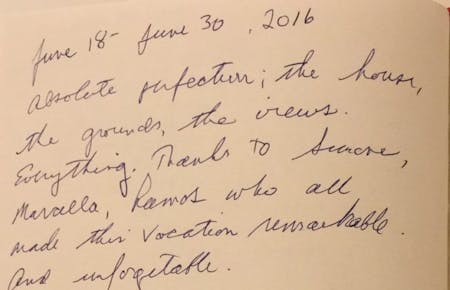 June 18- June 30, 2016
Absolute perfection; the house,
the grounds, the views.
Everything. Thanks to Simone,
Marcella, Ramos who all
made this vacation remarkable.
and unforgetable.